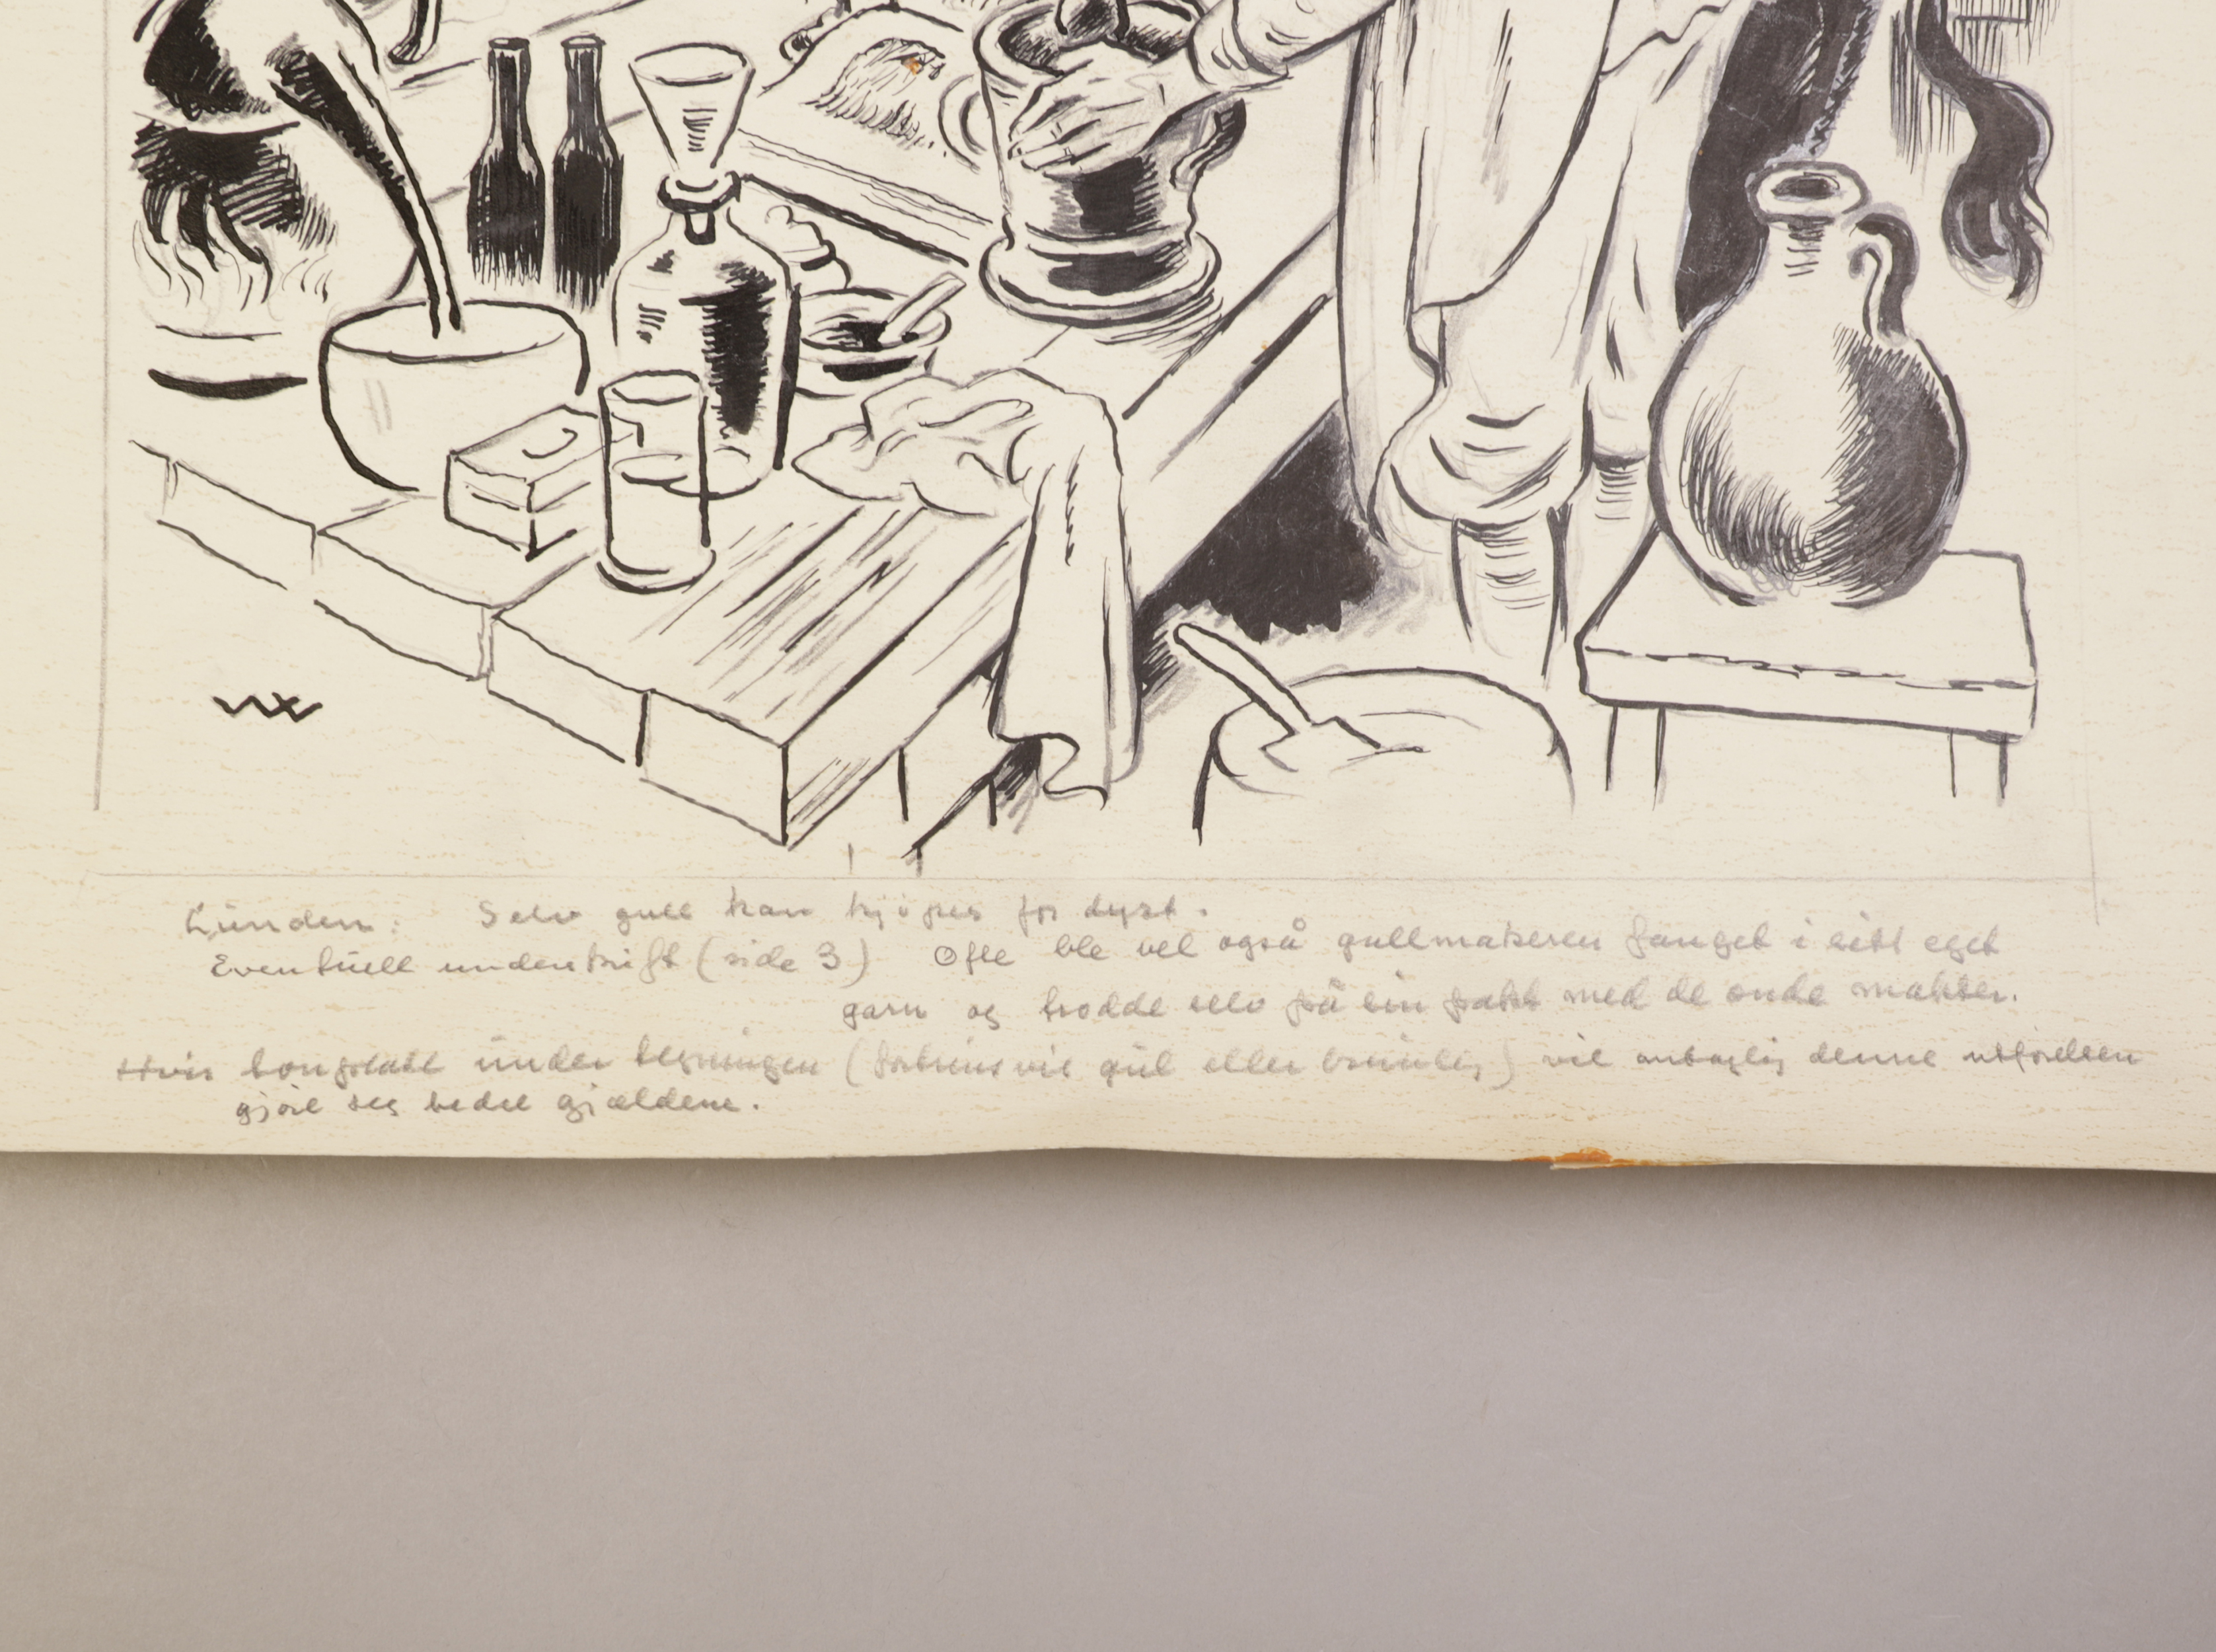 Lunden: Selv gull kan kjøpes for dyrt.
Eventuell underskrift (side 3) Ofte ble vel også gullmakeren fanget i sitt eget
garn og trodde selv på sin pakt med de onde makter.
Hvis tonplate under tegningen (fortrinsvis gul eller brunlig) vil antagelig denne utførelsen
gjøre seg bedre gjeldene.